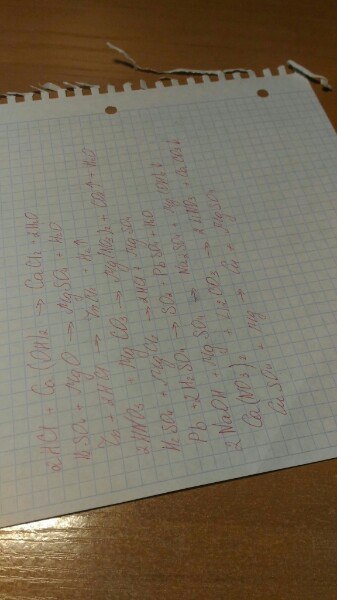 2HCl + Ca(OH)2 → CaCl2 + 2H2O
H2SO4 + MgO → MgSO4 + H2O
Zn + 2HCl → ZnCl2 + H2↑
2HNO3 + MgCO3 → Mg(NO3)2 + CO2↑ + H2O
H2SO4 + MgCl2 → 2HCl + MgSO4
Pb + 2H2SO4 → SO2 + PbSO4 + H2O
2NaOH + MgSO4 → Na2SO4 + Mg(OH)2↓
Ca(NO3)2 + Li2CO3 → 2LiNO3 + CaCO3↓
CuSO4 + Mg → Cu + MgSO4